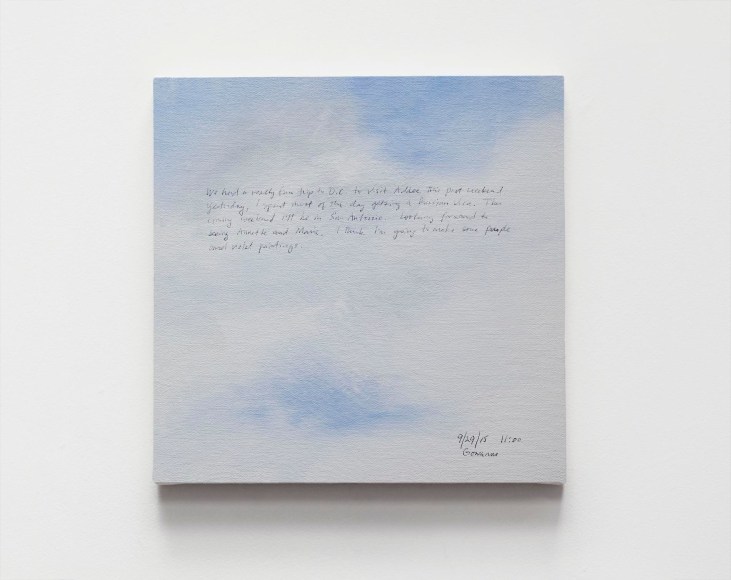 We had a really fun trip to D.C. to visit this past weekend
Yesterday, I spent most of the day getting a Russian Visa. This
coming weekend I'll be in San Antonio. Looking forward to
seeing Annette and Marie. I think I'm going to make some purple
and violet paintings.
9/29/15 11:00
Gowanus